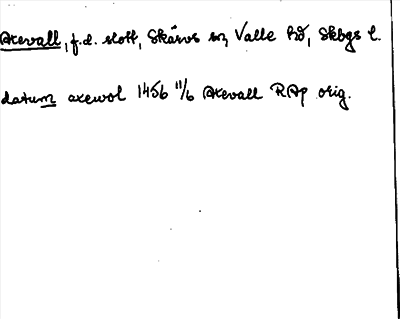 Axevall, f.d. slott, Skärvs sn, Valle hd, Skbgs l.
datum axewol 1456 11/6 Axevall RAp orig.